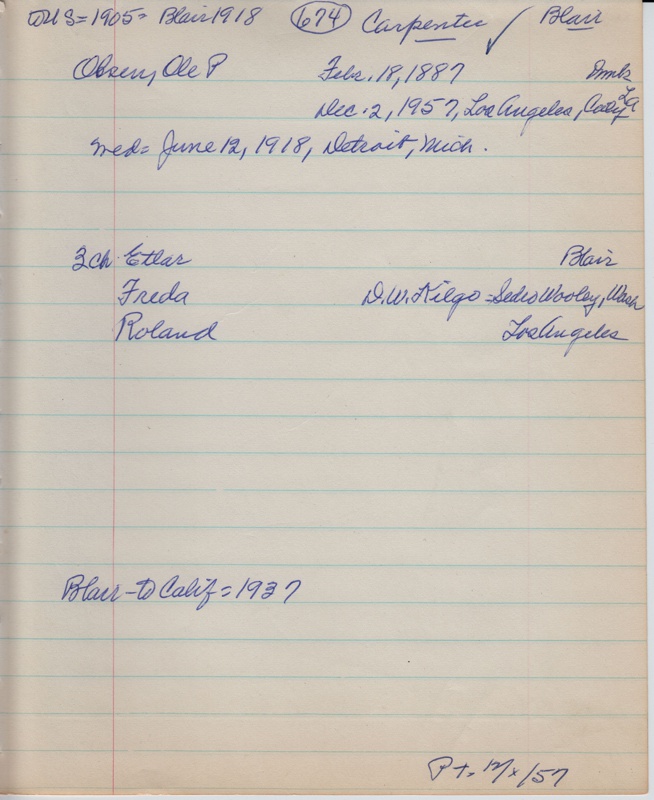 to US = 1905 = Blair 1918 (674) Carpenter ✓ Blair
Olsen, Ole P Febr. 18, 1887 Dmk
Dec. 2, 1957, Los Angeles, Calif
med = June 12, 1918, Detroit, Mich.
3 ch Etlar Blair
Freda D.W. Kilgo = Sedro Wooley, Wash
Roland Los Angeles
Blair - to Calif = 1937